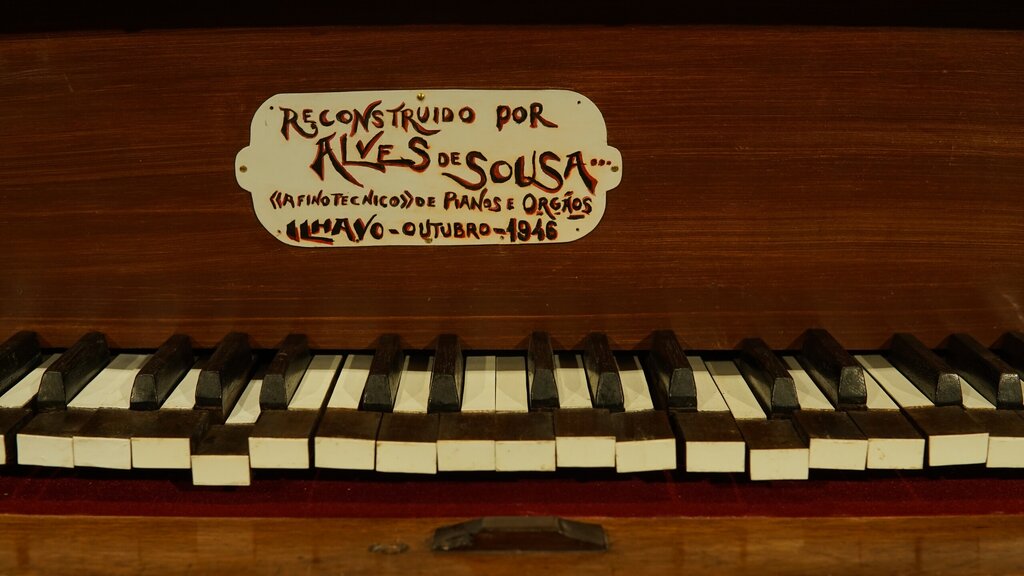 RECONSTRUIDO POR
ALVES DE SOUSA...
«AFINOTECNICO» DE PIANOS E ORGÃOS
ILHAVO - OUTUBRO - 1946